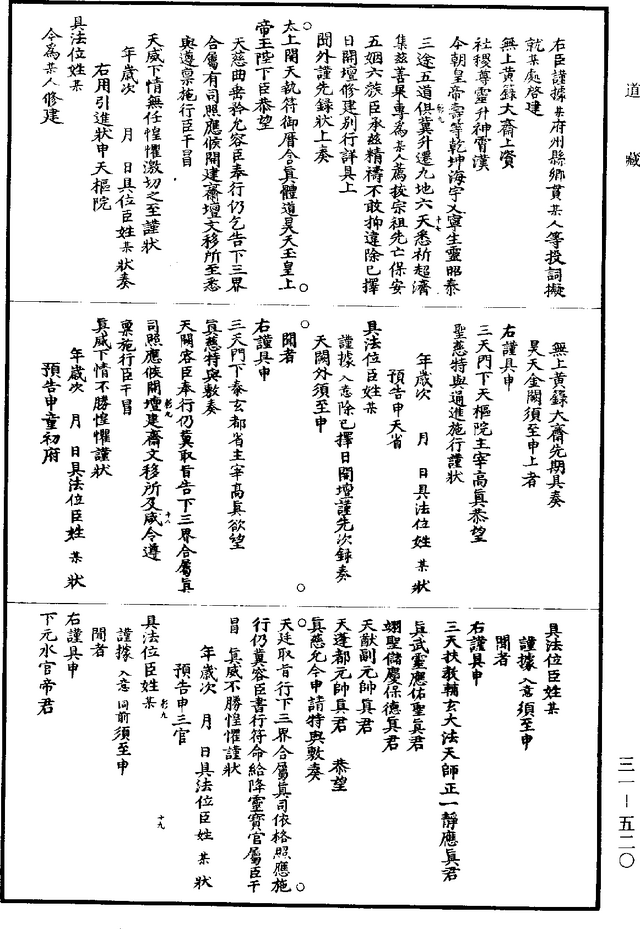 道藏
右臣謹據某府州縣鄉貫某人等投詞擬
就某處啓建
無上黃籙大齋上資
社稷尊靈升神霄漢
今朝皇帝壽等乾坤海宇乂寧生靈昭泰
三途五道俱冀升遷九地六天悉祈超濟
集茲善果專為某人薦拔宗祖先亡保安
五姻六族臣承茲精禱不敢抑違除已擇
日開壇修建別行詳具上
聞外謹先錄狀上奏
太上開天執符御曆含真體道昊天玉皇上
帝玉陛下臣恭望
天慈曲垂矜允容臣奉行仍乞告下三界
合屬有司照應候開建齋壇文移所至悉
與遵稟施行臣干冒
天威下情無任惶懼激切之至謹狀
年歲次 月 日具位臣姓某狀奏
右用引進狀申天樞院
具法位姓某
今為某人修建
無上黃籙大齋先期具奏
昊天金闕須至申上者
右謹具申
三天門下天樞院主宰高真恭望
聖慈特與通進施行謹狀
年歲次 月 日具法位臣姓某狀
預告申天省
具法位臣姓某
謹據入意除已擇日開壇謹先次錄奏
天闕外須至申
聞者
右謹具申
三天門下泰玄都省主宰高真欲望
真慈特與敷奏
天閽容臣奉行仍冀取旨告下三界合屬真
司照應候開壇建齋文移所及咸令遵
稟施行臣干冒
真威下情不勝惶懼謹狀
年歲次 月 日具法位臣姓某狀
預告申童初府
具法位臣姓某
謹據入意須至申
聞者
右謹具申
三天扶教輔玄大法天師正一靜應真君
真武靈應佑聖真君
翊聖儲慶保德真君
天猷副元帥真君
天蓬都元帥真君 恭望
真慈允今申請特與敷奏
天廷取旨行下三界合屬真司依格照應施
行仍冀容臣書行符命給降靈寶官屬臣干
冒 真威不勝惶懼謹狀
年歲次 月 日具法位臣姓某狀
預告申三官
具法位臣姓某
謹據入意同前須至申
聞者
右謹具申
下元水官帝君
三一－五二〇